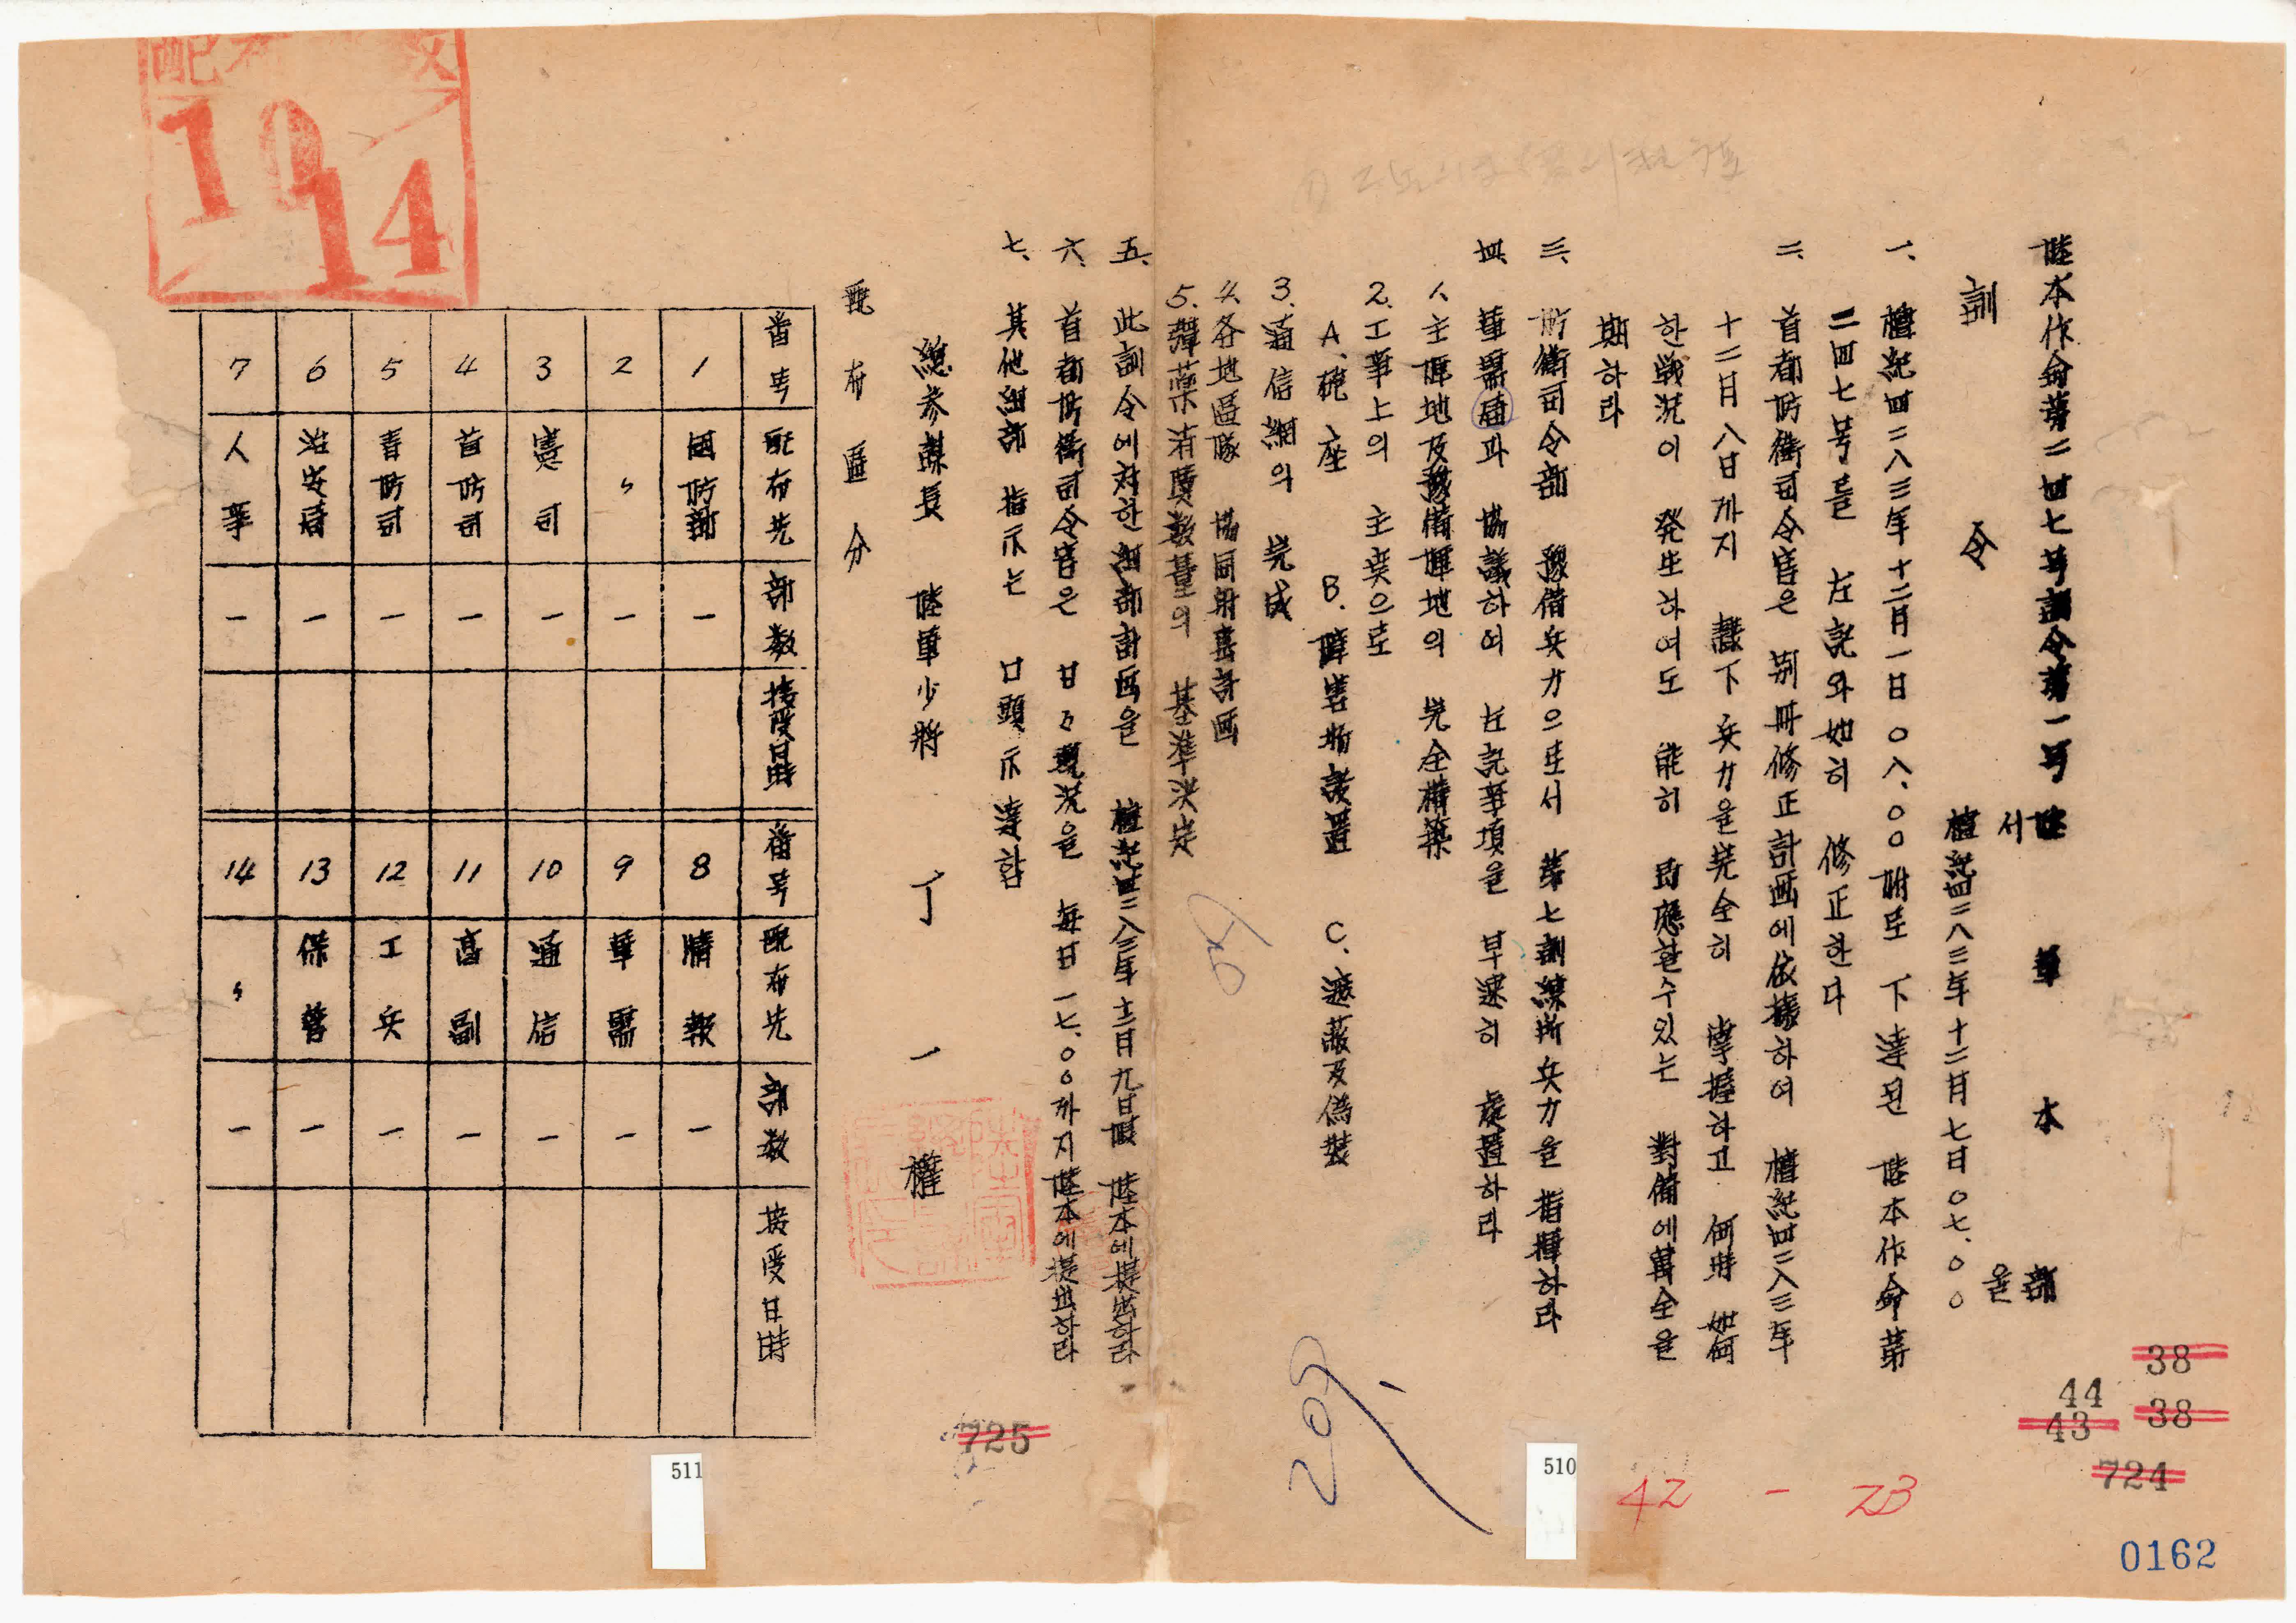 陸本作命第二四七号訓令第一号
陸軍本部
서울
檀紀四二八三年十二月七日〇七.〇〇
訓令
一、檀紀四二八三年十二月一日〇八.〇〇附로 下達된 陸本作命第
二四七号를 左記와如히 修正한다
二、首都防衛司令官은 別冊修正計画에依據하여 檀紀四二八三年
十二月八日까지 隷下兵力을完全히 掌握하고 何時 如何
한戦況이 発生하여도 能히 即應할수있는 對備에萬全을
期하라
三、防衛司令部 豫備兵力으로서 第七訓練所兵力을 指揮하라
四、軍需局과 協議하여 左記事項을 早速히 處置하라
1、主陣地及豫備陣地의 完全構築
2、工事上의 主案으로
A、銃座 B、障害物設置 C、遮蔽及偽装
3、通信網의 完成
4、各地區隊 協同射擊計画
5、彈藥消費數量의 基準決定
五、此訓令에対한細部計画을 檀紀四二八三年十二月九日限 陸本에提出하라
六、首都防衛司令官은 日々現況을 每日一七.〇〇까지陸本에提出하라
七、其他細部 指示는 口頭示達함
總参謀長 陸軍少將 丁一權
配布區分
番号 配布先 部数 接受日時 番号 配布先 部数 接受日時
1 國防部 一 8 情報 一
2 〃 一 9 軍需 一
3 憲司 一 10 通信 一
4 首防司 一 11 高副 一
5 春防司 一 12 工兵 一
6 治安局 一 13 保管 一
7 人事 一 14 〃 一
10
14
209
38
44
38
43
724
725
42 - 23
510
511
0162